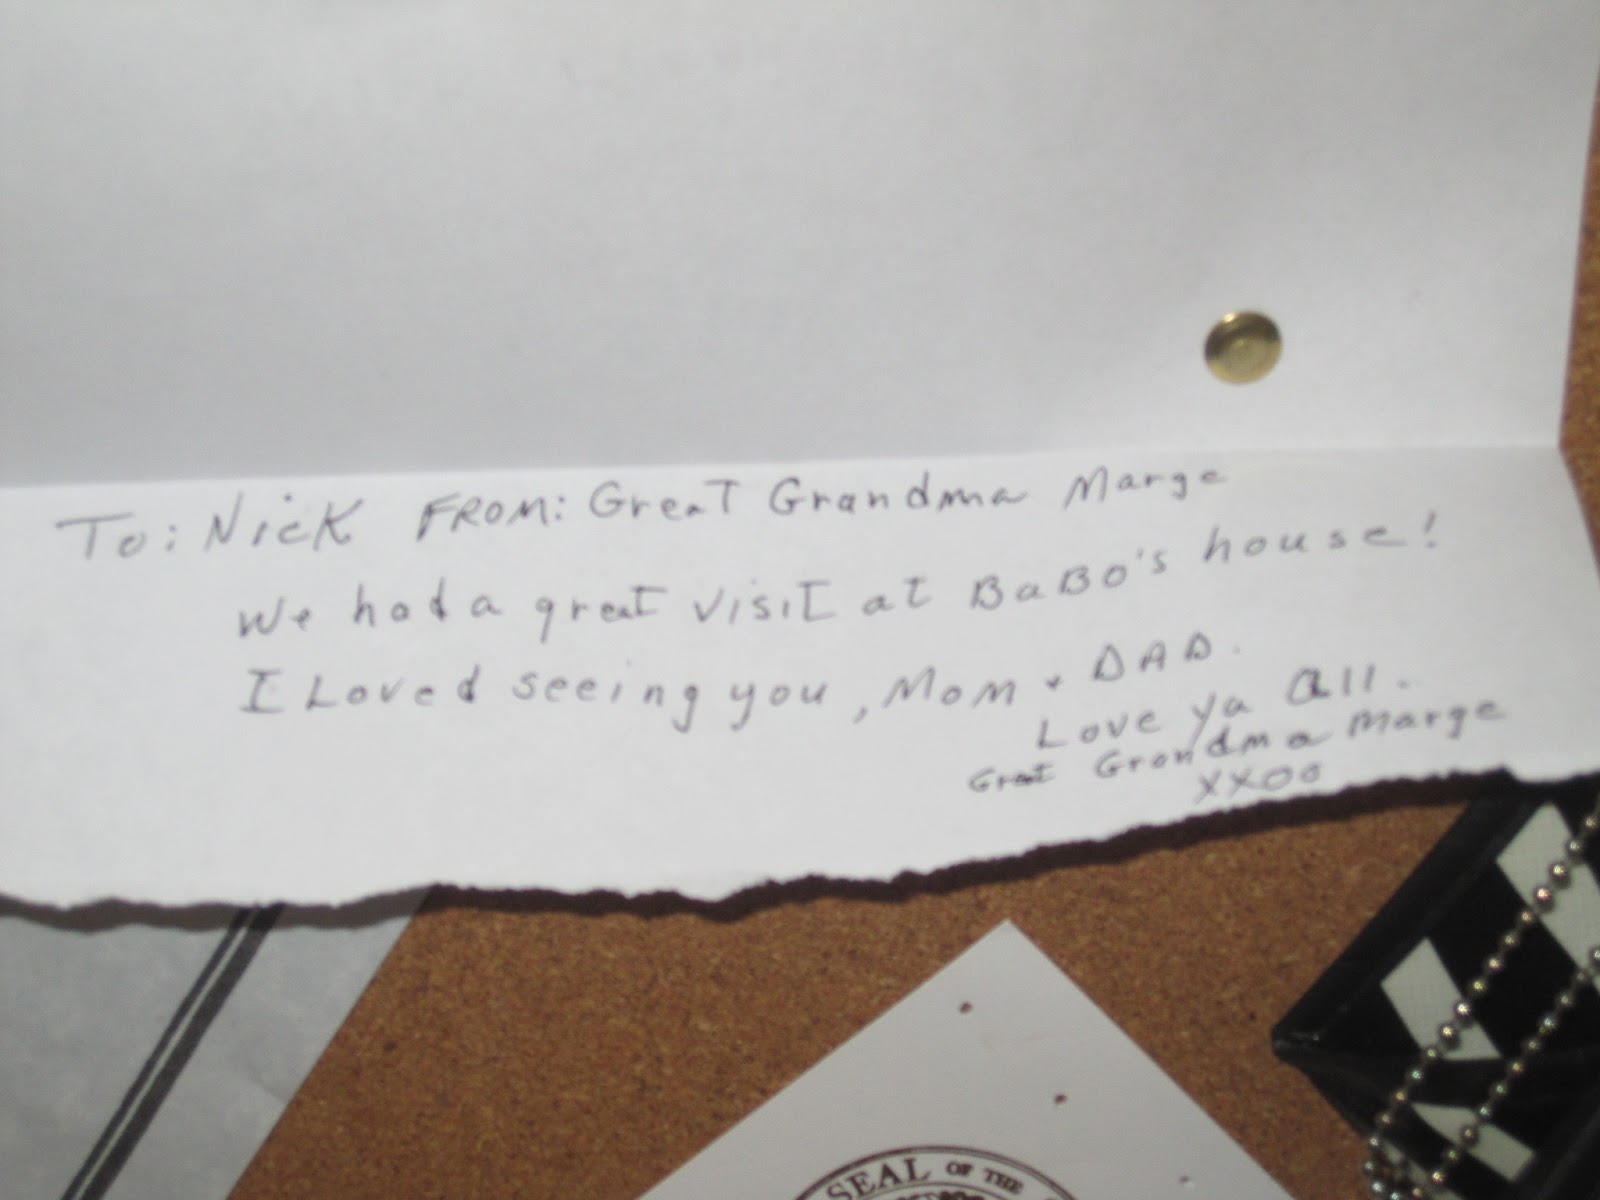 To: Nick FROM: Great Grandma Marge
We had a great visit at BaBO's house!
I Loved seeing you, Mom + DAD.
Love ya all.
Great Grandma Marge
XXOO
SEAL OF THE